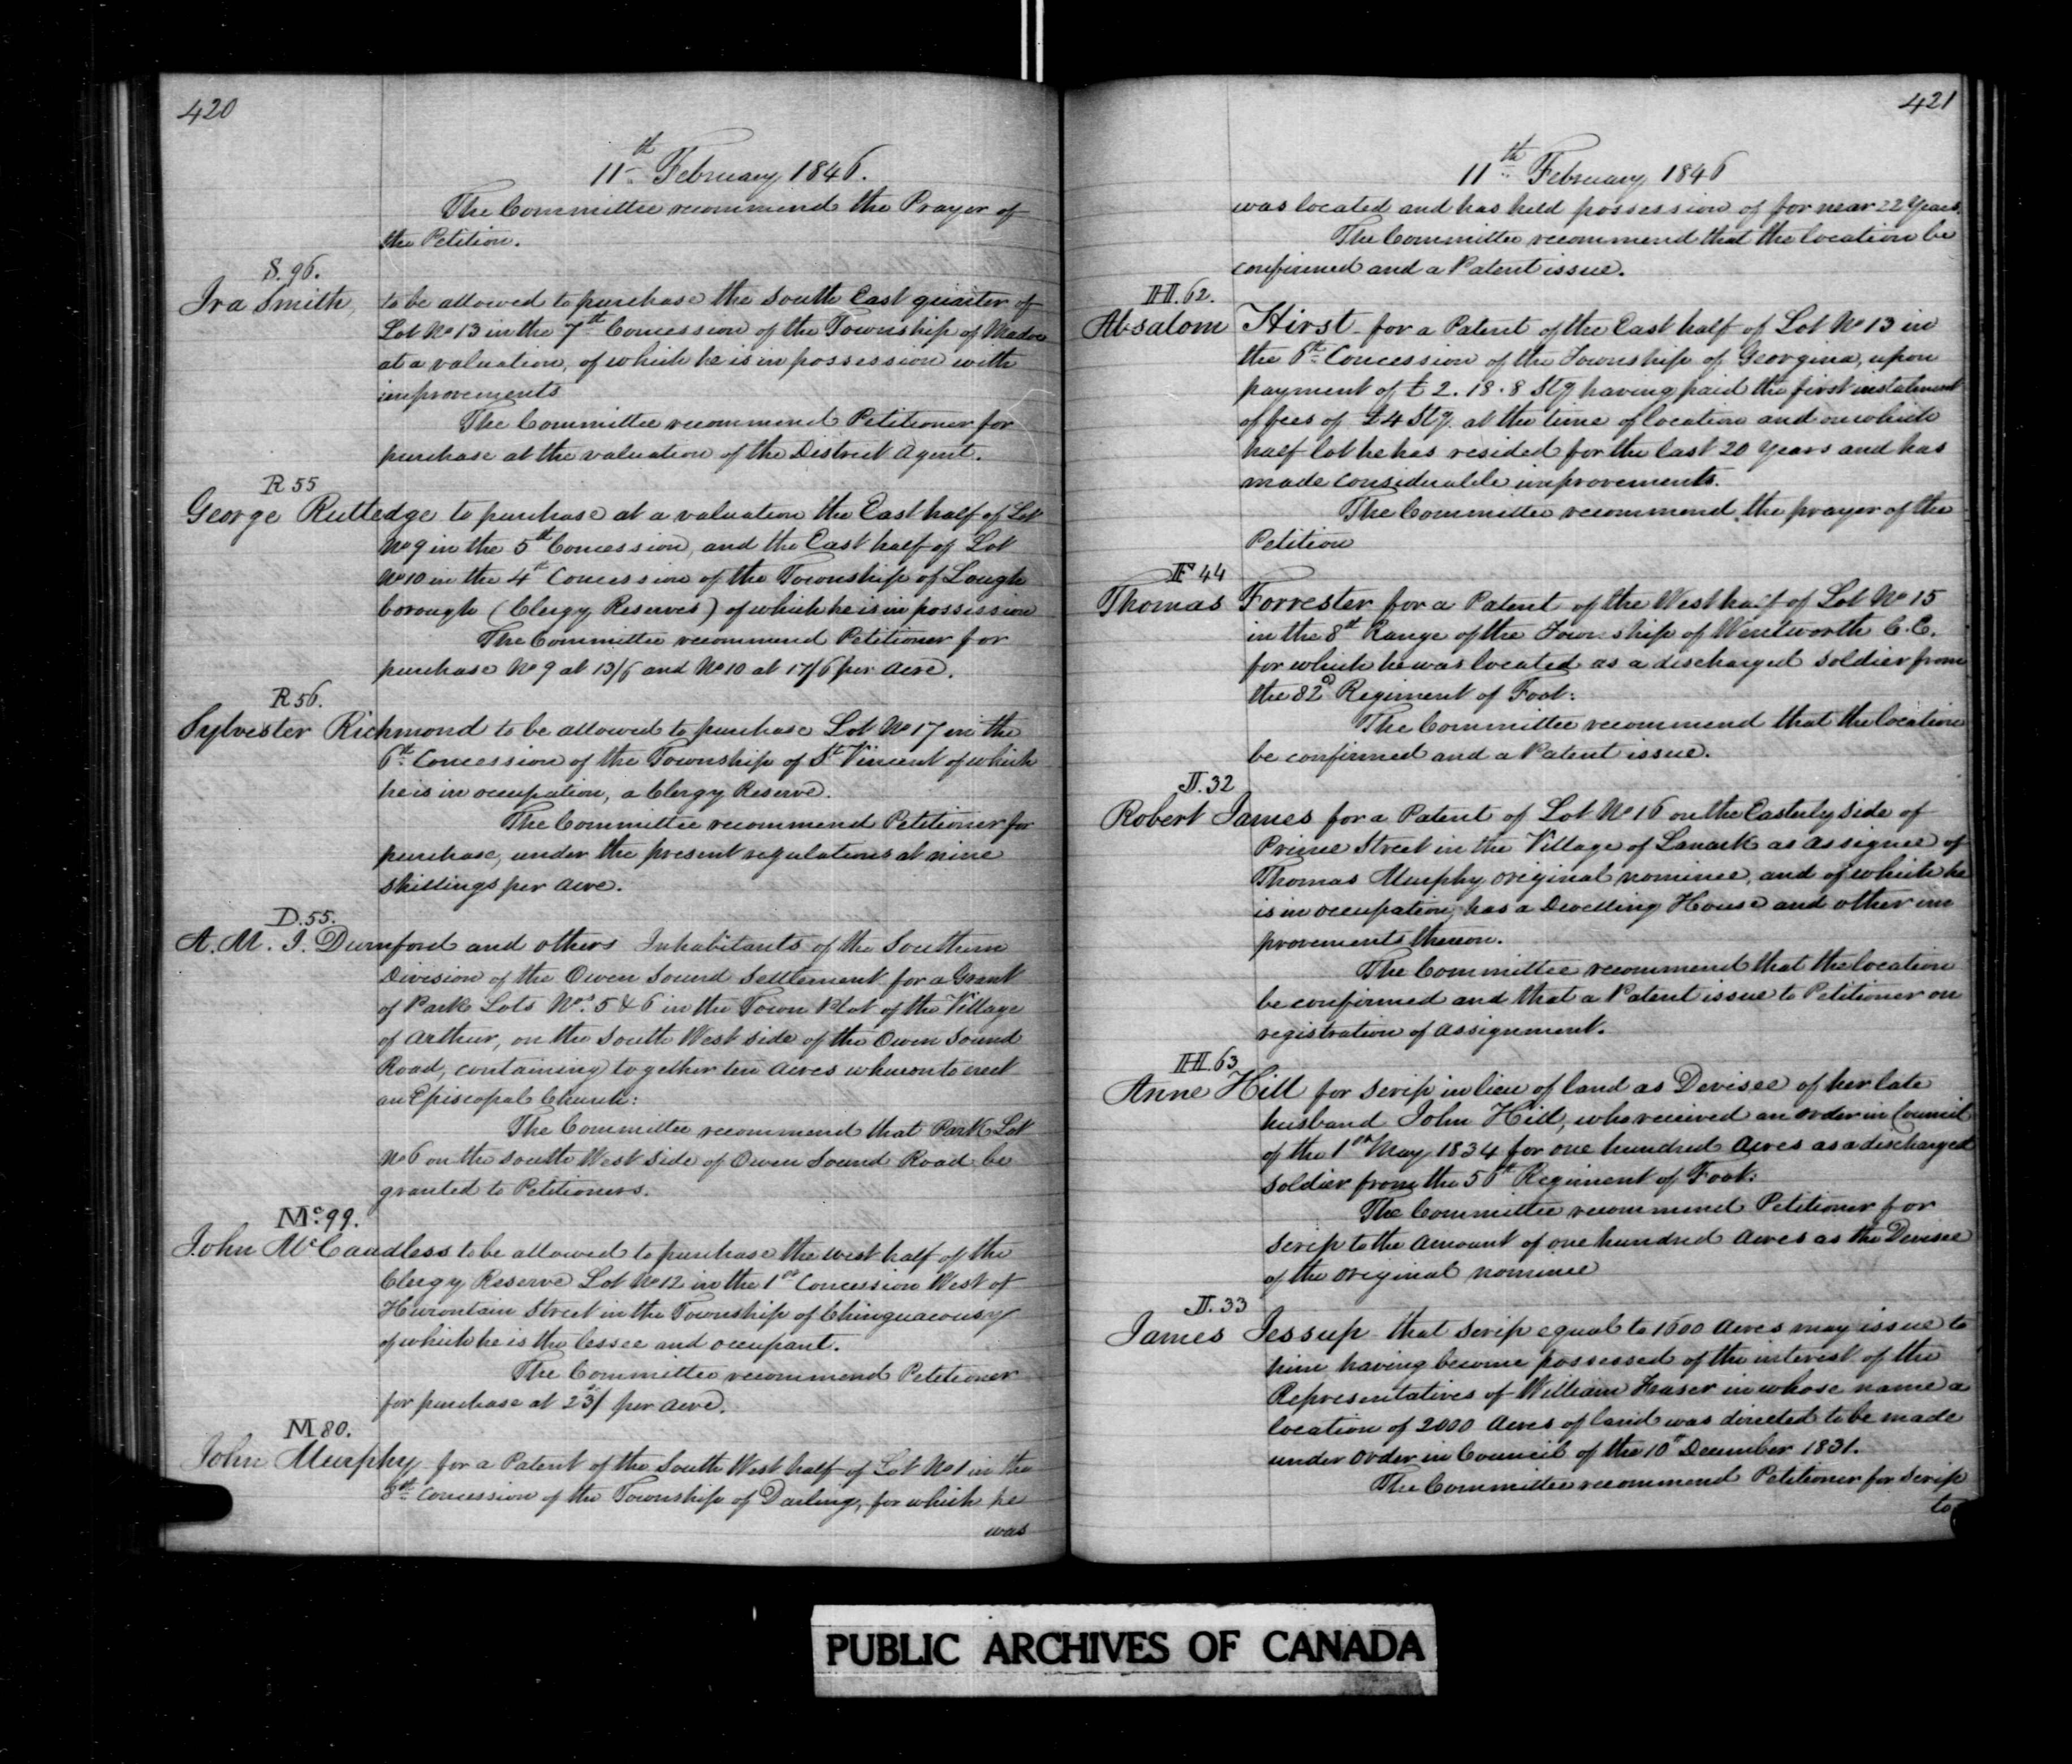 420
11th February 1846.
The Committee recommend the Prayer of
the Petition.
S. 96.
Ira Smith, to be allowed to purchase the South East quarter of
Lot No 13 in the 7th Concession of the Township of Madoc
at a valuation, of which he is in possession with
improvements
The Committee recommend Petitioner for
purchase at the valuation of the District Agent.
R 55
George Rutledge to purchase at a valuation the East half of Lot
No 9 in the 5th Concession, and the East half of Lot
No 10 in the 4th Concession of the Township of Lough
borough (Clergy Reserves) of which he is in possession
The Committee recommend Petitioner for
purchase No 9 at 13/6 and No 10 at 17/6 per Acre.
R 56.
Sylvester Richmond to be allowed to purchase Lot No 17 in the
6th Concession of the Township of St Vincent of which
he is in occupation, a Clergy Reserve.
The Committee recommend Petitioner for
purchase, under the present regulations at nine
shillings per Acre.
D. 55.
A. M. I. Durnford and others Inhabitants of the Southern
Division of the Owen Sound Settlement for a Grant
of Park Lots Nos. 5 & 6 in the Town Plot of the Village
of Arthur, on the South West side of the Owen Sound
Road, containing together ten Acres whereon to erect
an Episcopal Church:
The Committee recommend that Park Lot
No 6 on the South West side of Owen Sound Road be
granted to Petitioners.
Mc. 99.
John McCandless to be allowed to purchase the west half of the
Clergy Reserve Lot No 12 in the 1st Concession West of
Hurontain Street in the Township of Chinguacousy
of which he is the lessee and occupant.
The Committee recommend Petitioner
for purchase at 23/ per Acre.
M 80.
John Murphy for a Patent of the South West half of Lot No 1 in the
3th Concession of the Township of Darling, for which he
was
421
11th February 1846
was located and has held possession of for near 22 Years.
The Committee recommend that the location be
confirmed and a Patent issue.
H. 62.
Absalom Hirst for a Patent of the East half of Lot No 13 in
the 6th Concession of the Township of Georgina, upon
payment of £2.18.8 Stg having paid the first instalment
of fees of £4 Stg. at the time of location and on which
half lot he has resided for the last 20 Years and has
made considerable improvements.
The Committee recommend the prayer of the
Petition
F 44
Thomas Forrester for a Patent of the West half of Lot No 15
in the 8th Range of the Township of Wentworth C.E.
for which he was located as a discharged soldier from
the 82d Regiment of Foot:
The Committee recommend that the location
be confirmed and a Patent issue.
J. 32
Robert James for a Patent of Lot No 16 on the Easterly side of
Prince Street in the Village of Lanark as assignee of
Thomas Murphy original nominee, and of which he
is in occupation, has a Dwelling House and other im
provements thereon.
The Committee recommend that the location
be confirmed and that a Patent issue to Petitioner on
registration of assignment.
H. 63
Anne Hill for scrip in lieu of land as Devisee of her late
husband John Hill, who received an order in Council
of the 1st May 1834 for one hundred Acres as a discharged
soldier from the 56th Regiment of Foot:
The Committee recommend Petitioner for
scrip to the Amount of one hundred Acres as the Devisee
of the original nominee
J. 33
James Jessup that scrip equal to 1600 Acres may issue to
him having become possessed of the interest of the
Representatives of William Fraser in whose name a
location of 2000 Acres of land was directed to be made
under order in Council of the 10th December 1831.
The Committee recommend Petitioner for scrip
to
PUBLIC ARCHIVES OF CANADA